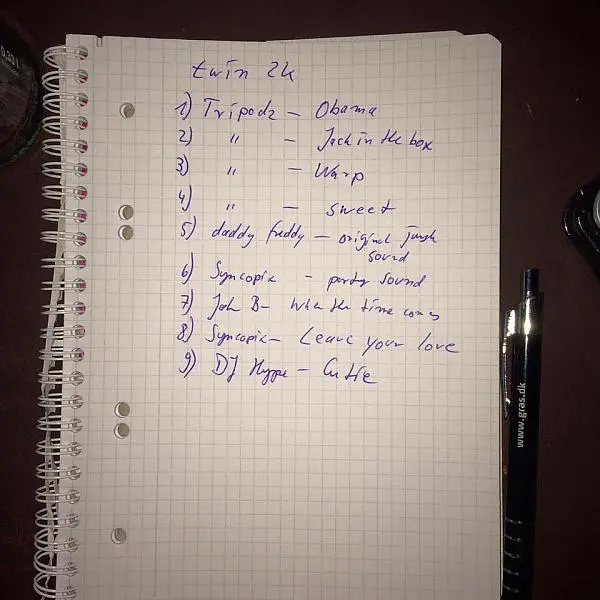 twin 2k
1) Tripodz - Obama
2) " - Jack in the box
3) " - Warp
4) " - sweet
5) daddy freddy - original jungle
sound
6) Syncopix - party sound
7) Jah B - When the time comes
8) Syncopix - Leave your love
9) DJ Hype - Cuttie
www.gras.dk
0,33 l